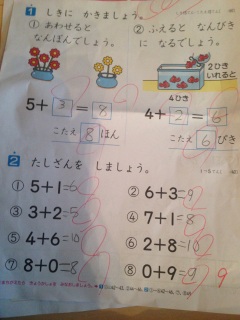 1 しきに かきましょう。
① あわせると
なんぼんでしょう。
② ふえると なんびき
に なるでしょう。
2ひき
いれると
4ひき
5+3=8
こたえ 8 ほん
4+2=6
こたえ 6 ぴき
2 たしざんを しましょう。
① 5+1=6
② 6+3=9
③ 3+2=5
④ 7+1=8
⑤ 4+6=10
⑥ 2+8=10
⑦ 8+0=8
⑧ 0+9=9
9